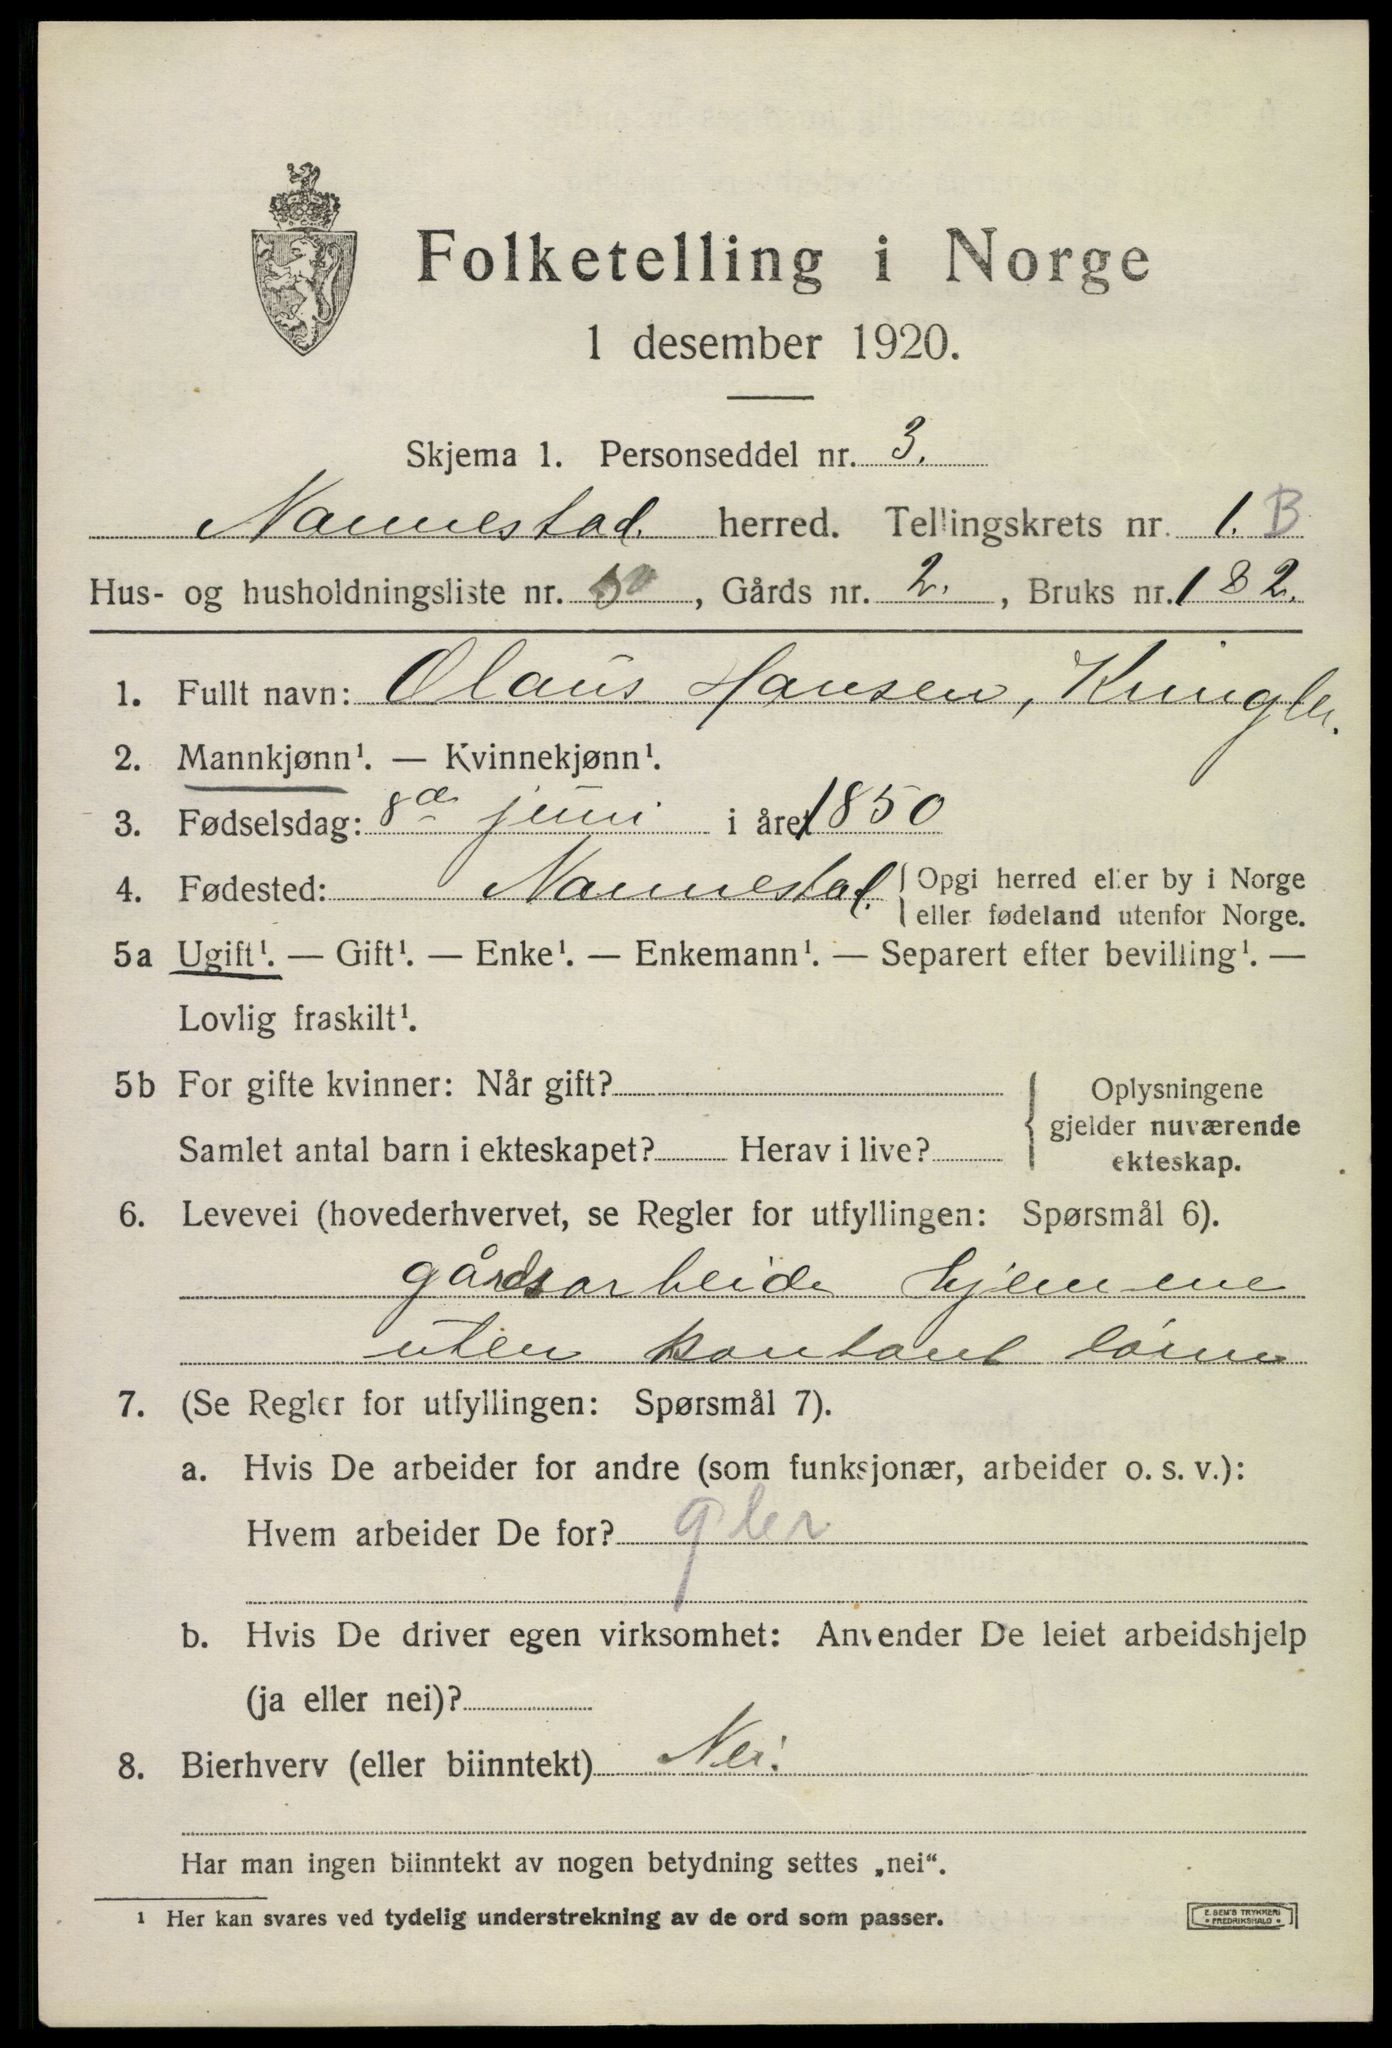 Folketelling i Norge
1 desember 1920.
Skjema 1. Personseddel nr. 3.
Nannestad. herred. Tellingskrets nr. 1. B
Hus- og husholdningsliste nr. 50, Gårds nr. 2., Bruks nr. 182.
1. Fullt navn: Olaus Hansen, Kringler.
2. Mannkjønn¹. — Kvinnekjønn¹.
3. Fødselsdag: 8de juni i året 1850
4. Fødested: Nannestad. Opgi herred eller by i Norge
eller fødeland utenfor Norge.
5a Ugift¹. — Gift¹. — Enke¹. — Enkemann¹. — Separert efter bevilling¹. —
Lovlig fraskilt¹.
5b For gifte kvinner: Når gift?
Samlet antal barn i ekteskapet? Herav i live?
Oplysningene
gjelder nuværende
ekteskap.
6. Levevei (hovederhvervet, se Regler for utfyllingen: Spørsmål 6).
gårdsarbeide hjemme
uten kontant lønn
7. (Se Regler for utfyllingen: Spørsmål 7).
a. Hvis De arbeider for andre (som funksjonær, arbeider o. s. v.):
Hvem arbeider De for?
b. Hvis De driver egen virksomhet: Anvender De leiet arbeidshjelp
(ja eller nei)?
8. Bierhverv (eller biinntekt) Nei.
Har man ingen biinntekt av nogen betydning settes „nei“.
¹ Her kan svares ved tydelig understrekning av de ord som passer.
E. SEM'S TRYKKERI
• FREDRIKSHALD •